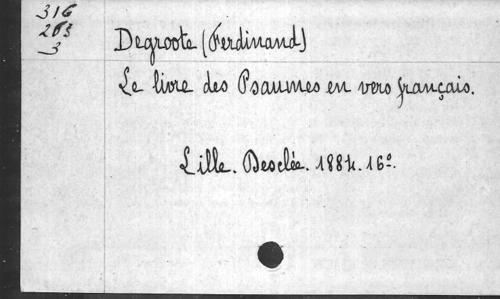 316
263
3
Degroote (Ferdinand)
Le livre des Psaumes en vers français.
Lille. Desclée. 1884. 16º.